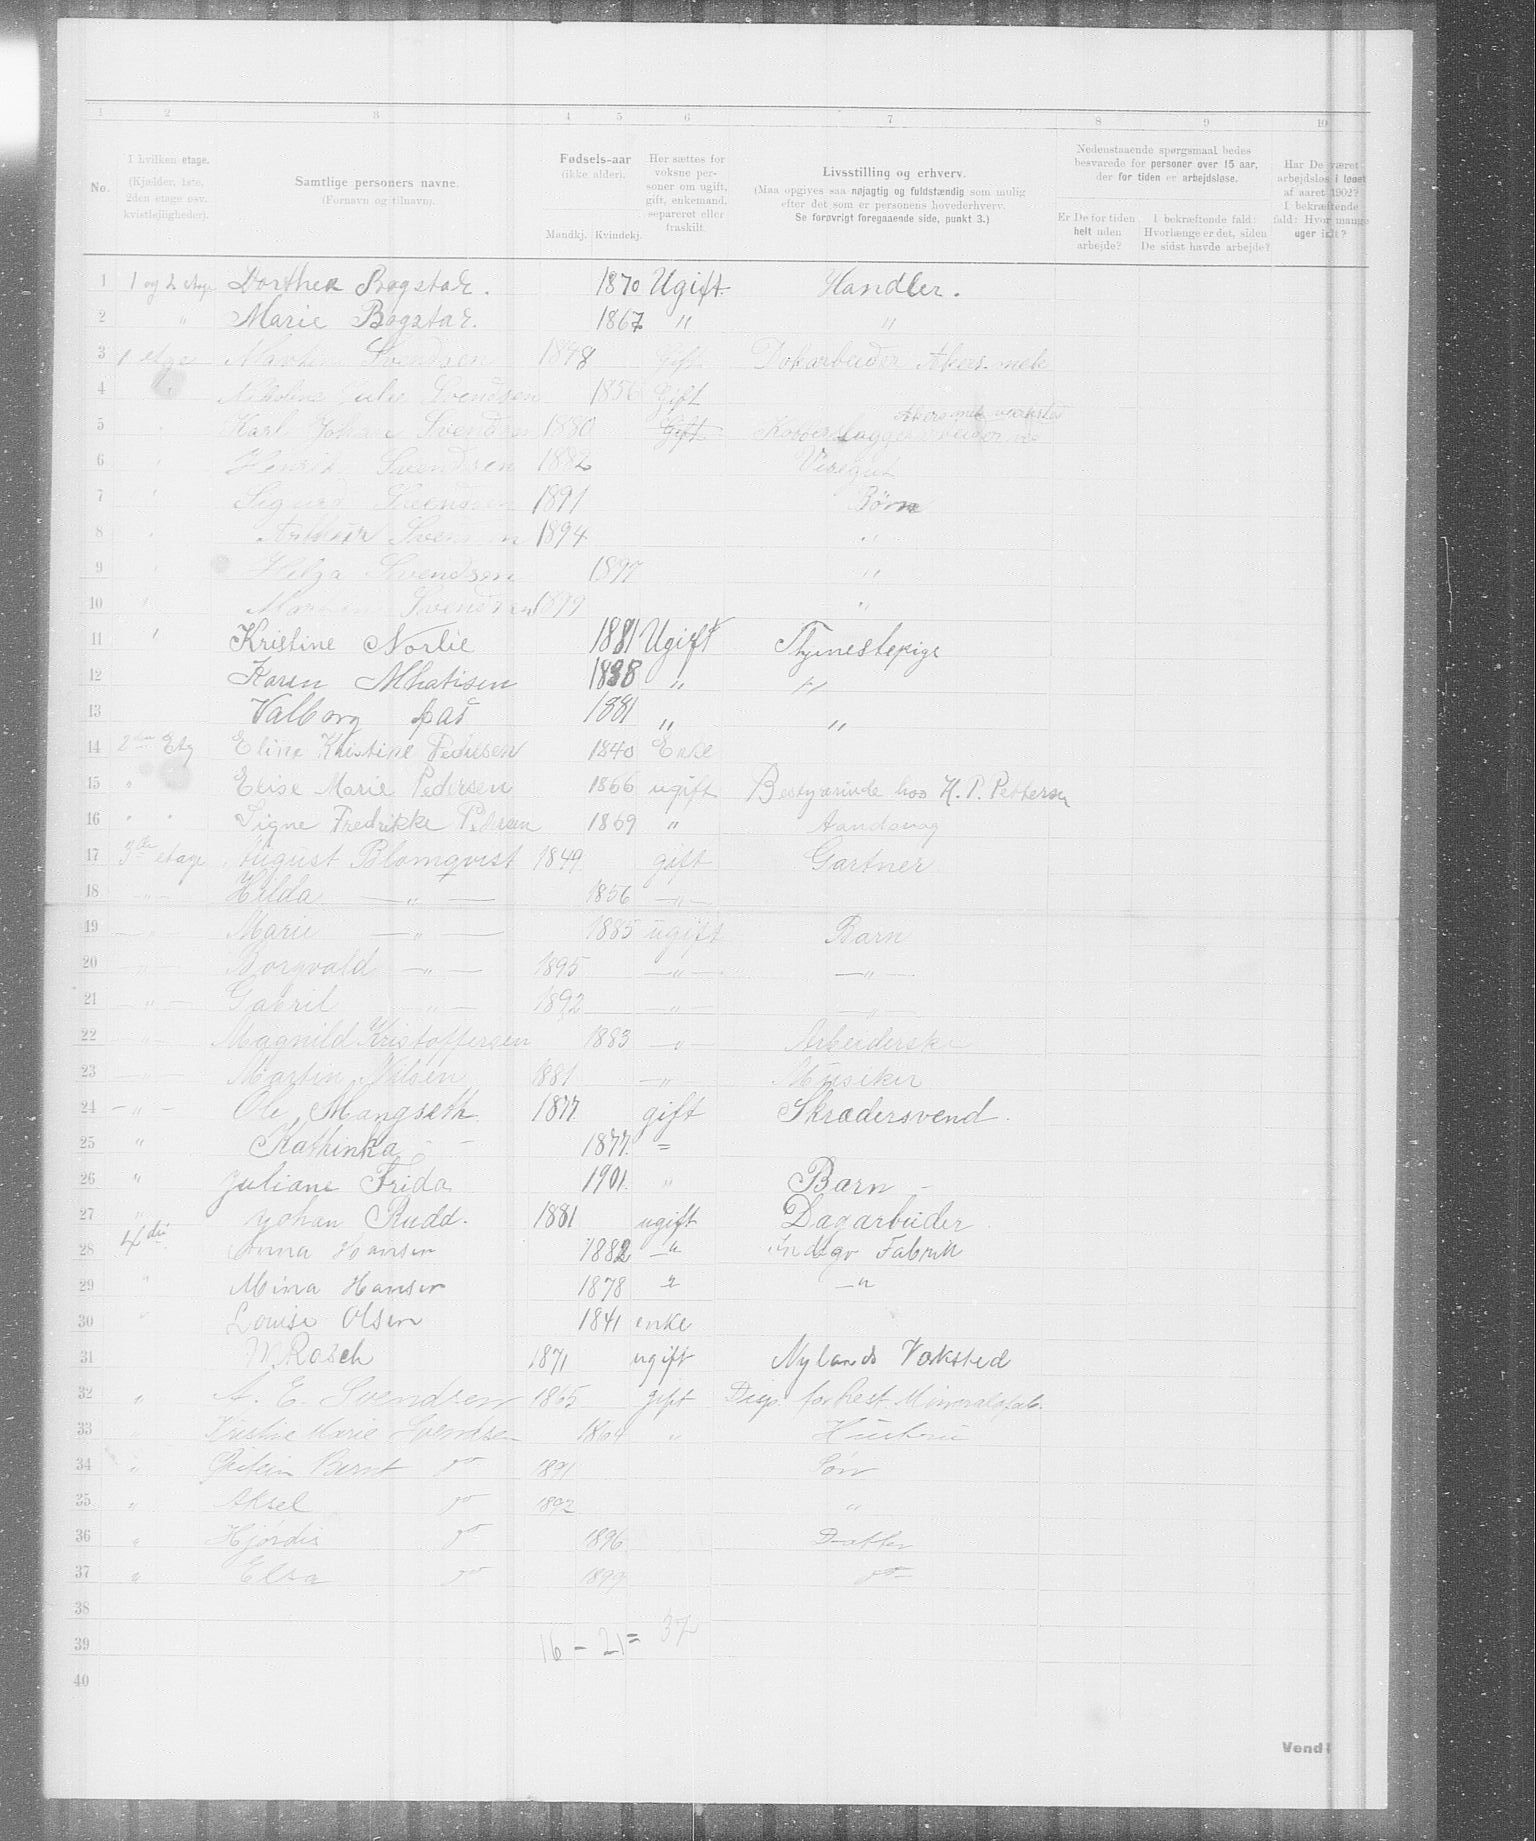 1 2 3 4 5 6 7 8 9 10
No. I hvilken etage. (Kjælder, 1ste, 2den etage osv. kvistleiligheder). Samtlige personers navne. (Fornavn og tilnavn). Fødsels-aar (ikke alder). Mandkj. Kvindekj. Her sættes for voksne personer om ugift, gift, enkemand, separeret eller fraskilt. Livsstilling og erhverv. (Maa opgives saa nøjagtig og fuldstændig som mulig efter det som er personens hovederhverv. Se forøvrigt foregaaende side, punkt 3.) Nedenstaaende spørgsmaal bedes besvarede for personer over 15 aar, der for tiden er arbejdsløse. Er De for tiden helt uden arbejde? I bekræftende fald: Hvorlænge er det, siden De sidst havde arbejde? Har De været arbejdsløs i løpet af aaret 1902? I bekræftende fald: Hvor mange uger ialt?
1 1 og 2 etage Dorthea Bogstad. 1870 Ugift Handler.
2 " Marie Bogstad. 1867 " "
3 1 etage Svendsen 1848 Gift Dokarbeider Akers mek
4 " Julie Svendsen 1856 Gift
5 " Karl Johan Svendsen 1880 Gift Akers mek værksted
6 " Henrik Svendsen 1882
7 " Sigurd Svendsen 1891 Børn
8 " Arthur Svendsen 1894 "
9 " Helga Svendsen 1897 "
10 " Svendsen 1899 "
11 " Kristine Norlie 1881 Ugift
12 Karen Mhatisen 1888 " "
13 Valborg 1881 " "
14 2den Etg Eline Kristine Pedersen 1840 Enke
15 " Elise Marie Pedersen 1866 ugift Bestyrerinde hos H. P. Pettersen
16 " " Signe Fredrikke Pedersen 1869 " Aandsvag
17 3die etage August Blomqvist 1849 gift Gartner
18 — " — Hilda — " — 1856 — " —
19 — " — Marie — " — 1885 ugift Barn
20 — " — Borgvald — " — 1895 — " — — " —
21 — " — Gabril — " — 1892 — " — — " —
22 — " — Magnild Kristoffersen 1883 — " — Arbeiderske
23 — " — Martin Nilsen 1881 — " — Musiker
24 — " — Ole Mangseth 1877 gift Skrædersvend.
25 " Kathinka — " — 1877. =
26 " Juliane Frida 1901. " Barn —
27 " Johan Rudd. 1881 ugift Dagarbeider
28 4die Anna Hansen 1882 — " Indigo Fabrik
29 " Mina Hansen 1878 " — "
30 " Louise Olsen 1841 enke
31 M. Rasch 1871 ugift Nylands Vaksted
32 " A. E. Svendsen 1865 gift Disp. for Vest. Mineralfab.
33 " Kristine Marie Svendsen 1864 " Hustru
34 " Bernt do 1891 Søn
35 " Aksel do 1892 "
36 " Hjørdis do 1896 Datter
37 " Elsa do 1899 do
38
39 16 — 21 = 37
40
Vend!